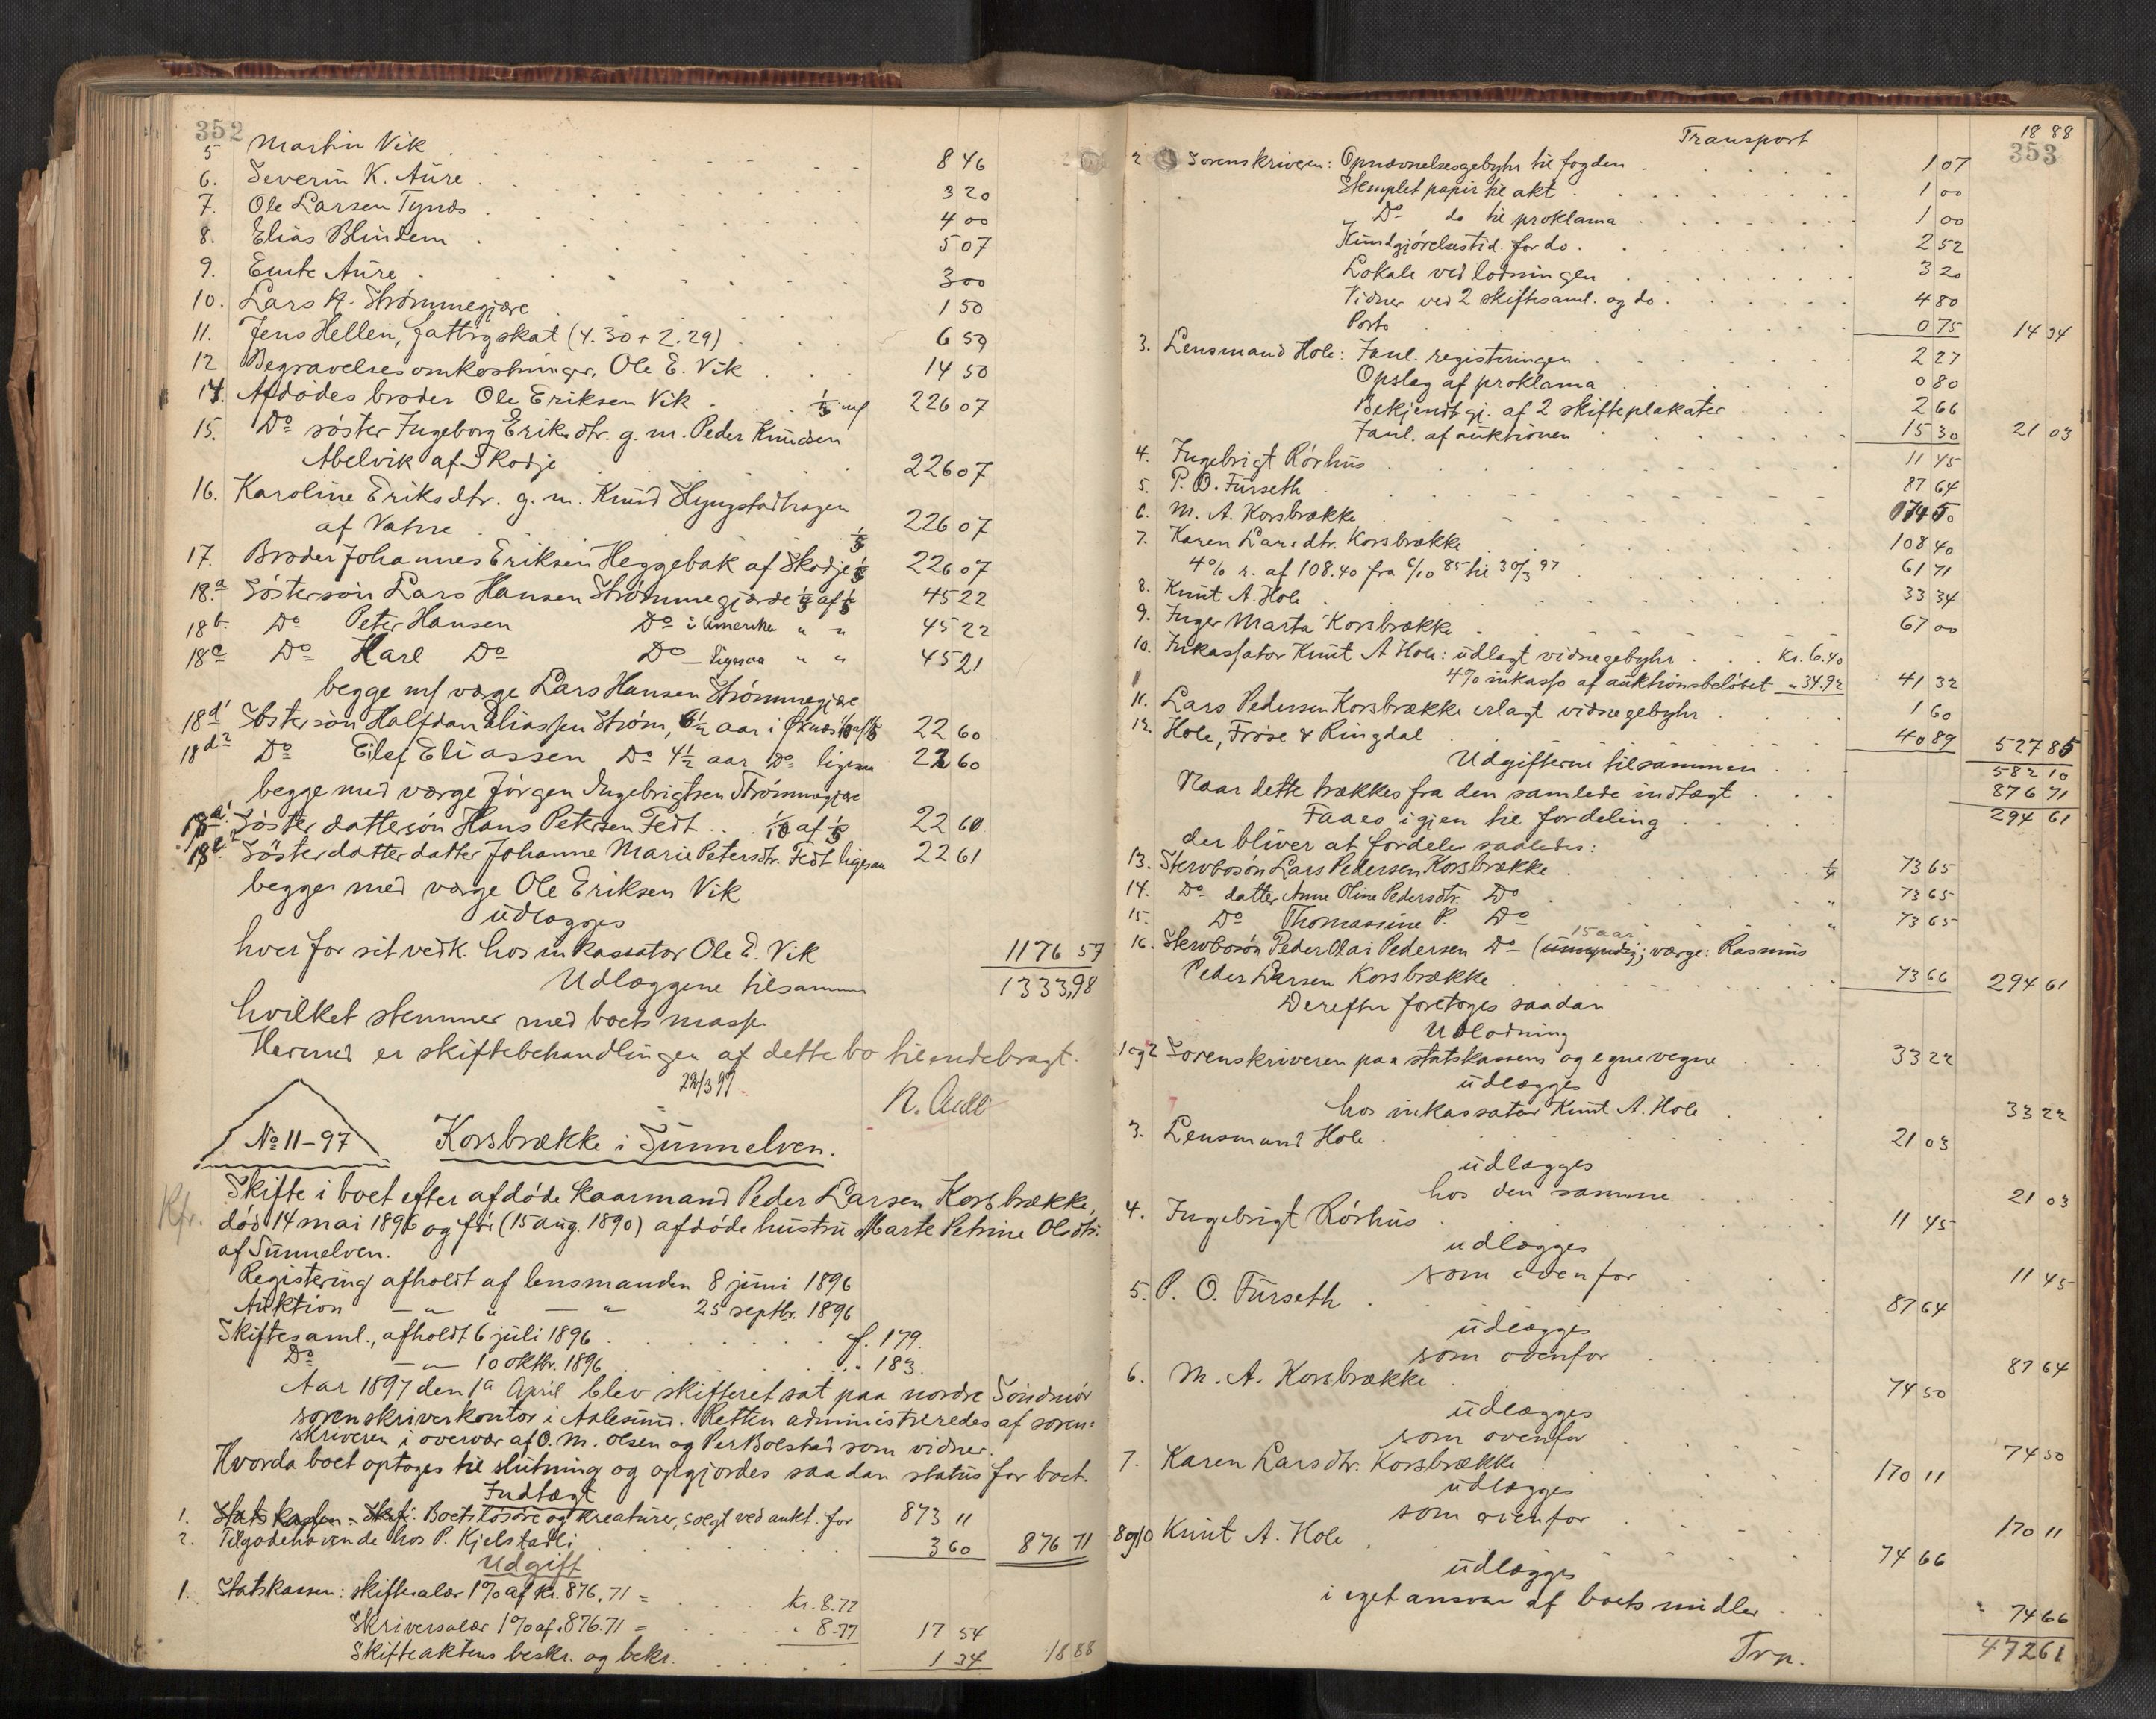 352
5 Martin Vik 8 46
6. Severin K. Aure 3 20
7. Ole Larsen Tynes 4 00
8. Elias Blindem 5 07
9. Ente Aure 3 00
10. Lars K. Strømmegjære 1 50
11. Jens Hellen, fattigskat (4.30 + 2.29) 6 59
12 Begravelsesomkostninger, Ole E. Vik 14 50
14. Afdødes broder Ole Eriksen Vik 1/5 m/ 226 07
15. Do søster Ingeborg Eriksdtr. g. m. Peder Knudsen
Abelvik af Skodje 226 07
16. Karoline Eriksdtr. g. m. Knud Hyngstadhagen
af Vatne 1/5 226 07
17. Broder Johannes Eriksen Heggebak af Skodje 1/5 226 07
18.a Søstersøn Lars Hansen Strømmegjærde 1/5 af 1/5 45 22
18b. Do Peter Hansen Do i Amerika " " 45 22
18c Do Karl Do Do – ligesaa " " 45 21
begge m/ værge Lars Hansen Strømmegjære
18d1 Søstersøn Halfdan Eliassen Strøm, 6½ aar i 1/10 af 1/5 22 60
18d2 Do Eilef Eliassen Do 4½ aar Do ligesaa 22 60
begge med værge Jørgen Ingebrigtsen Strømmegjære
18e1. Søsterdattersøn Hans Petersen Fedt 1/10 af 1/5 22 60
18e2. Søsterdatterdatter Johanne Marie Petersdtr. Fedt ligesaa 22 61
begge med værge Ole Eriksen Vik
udlægges
hver for sit vedk. hos inkassator Ole E. Vik 1176 57
Udlæggene tilsammen 1333,98
hvilket stemmer med boets masse
Hermed er skiftebehandlingen af dette bo tilendebragt.
29/3 97.
N. Aall
No 11–97 Korsbrække i Sunnelven.
Kfr.
Skifte i boet efter afdøde kaarmand Peder Larsen Korsbrække,
død 14 mai 1896 og før (15 aug. 1890) afdøde hustru Marte Petrine Olsdtr.
af Sunnelven.
Registering afholdt af lensmanden 8 juni 1896
Auktion — " — " 25 septbr. 1896
Skiftesaml., afholdt 6 juli 1896 f. 179.
Do — " — 10 oktbr. 1896 183.
Aar 1897 den 1ste April blev skifteret sat paa nordre Søndmør
sorenskriverkontor i Aalesund. Retten administreredes af soren=
skriveren i overvær af O. M. Olsen og Per Bolstad som vidner.
Hvorda boet optoges til slutning og opgjordes saadan status for boet.
Indtægt
1. Statskassen: Skif: Boets løsøre og kreaturer, solgt ved aukt. for 873 11
2. Tilgodehavende hos P. Kjelstadli 3 60 876 71
Udgift
1. Statskassen: skiftesalær 1% af kr. 876,71 = kr. 8.77
Skriversalær 1% af 876.71 = " 8.77 17 54
Skifteaktens beskr. og bekr. 1 34 18 88
353
Transport 18 88
2 Sorenskriveren: Opnævnelsesgebyhr til fogden 1 07
Stemplet papir til akt 1 00
Do do til proklama 1 00
Kundgjørelsestid. for do. 2 52
Lokale ved lodningen 3 20
Vidner ved 2 skiftesaml. og do. 4 80
Porto 0 75 14 34
3. Lensmand Hole: Fanl. registeringen 2 27
Opslag af proklama 0 80
Bekjendtgj. af 2 skifteplakater 2 66
Fanl. af auktionen 15 30 21 03
4. Ingebrigt Rørhus 11 45
5. P. O. Furseth 87 64
6. M. A. Korsbrække 74 50
7. Karen Larsdtr. Korsbrække 108 40
4% r. af 108.40 fra 6/10 85 til 30/3 97 61 71
8. Knut A. Hole 33 34
9. Inger Marta Korsbrække 67 00
10. Inkassator Knut A Hole: udlagt vidnegebyhr kr. 6.40
4% inkasso af auktionsbeløbet " 34.92 41 32
11. Lars Pedersen Korsbrække erlagt vidnegebyhr 1 60
12. Hole, Frøse & Ringdal 40 89 527 85
Udgifterne tilsammen 582 10
Naar dette trækkes fra den samlede indtægt 876 71
Faaes igjen til fordeling 294 61
der bliver at fordele saaledes:
13. Stervbosøn Lars Pedersen Korsbrække ¼ 73 65
14. Do datter Anne Oline Pedersdtr. Do " 73 65
15. Do Thomassine P. Do " 73 65
15 aar
16. Stervbosøn Peder Olai Pedersen Do (umyndig; værge: Rasmus
Peder Larsen Korsbrække " 73 66 294 61
Derefter foretoges saadan
Udlodning
1 og 2 Sorenskriveren paa statskassens og egne vegne 33 22
udlægges
hos inkassator Knut A. Hole 33 22
3. Lensmand Hole 21 03
udlægges
hos den samme 21 03
4. Ingebrigt Rørhus 11 45
udlægges
som ovenfor 11 45
5. P. O. Furseth 87 64
udlægges
som ovenfor 87 64
6. M. A. Korsbrække 74 50
udlægges
som ovenfor 74 50
7. Karen Larsdtr. Korsbrække 170 11
udlægges
som ovenfor 170 11
8 og 10 Knut A. Hole 74 66
udlægges
i eget ansvar af boets midler 74 66
Trp. 472 61